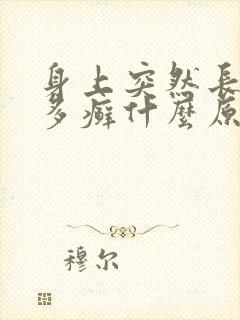 身上突然長
多癬什麼原
穆尔